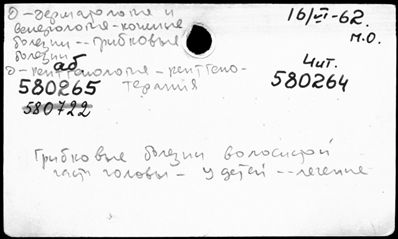 О - дерматология и
венерология - кожные
болезни -- грибковые
болезни
О - рентгенология - рентгено-
терапия
аб
580265
580722
16/VI-62.
М.О.
Чит.
580264
Грибковые болезни волосистой
части головы - у детей -- лечение